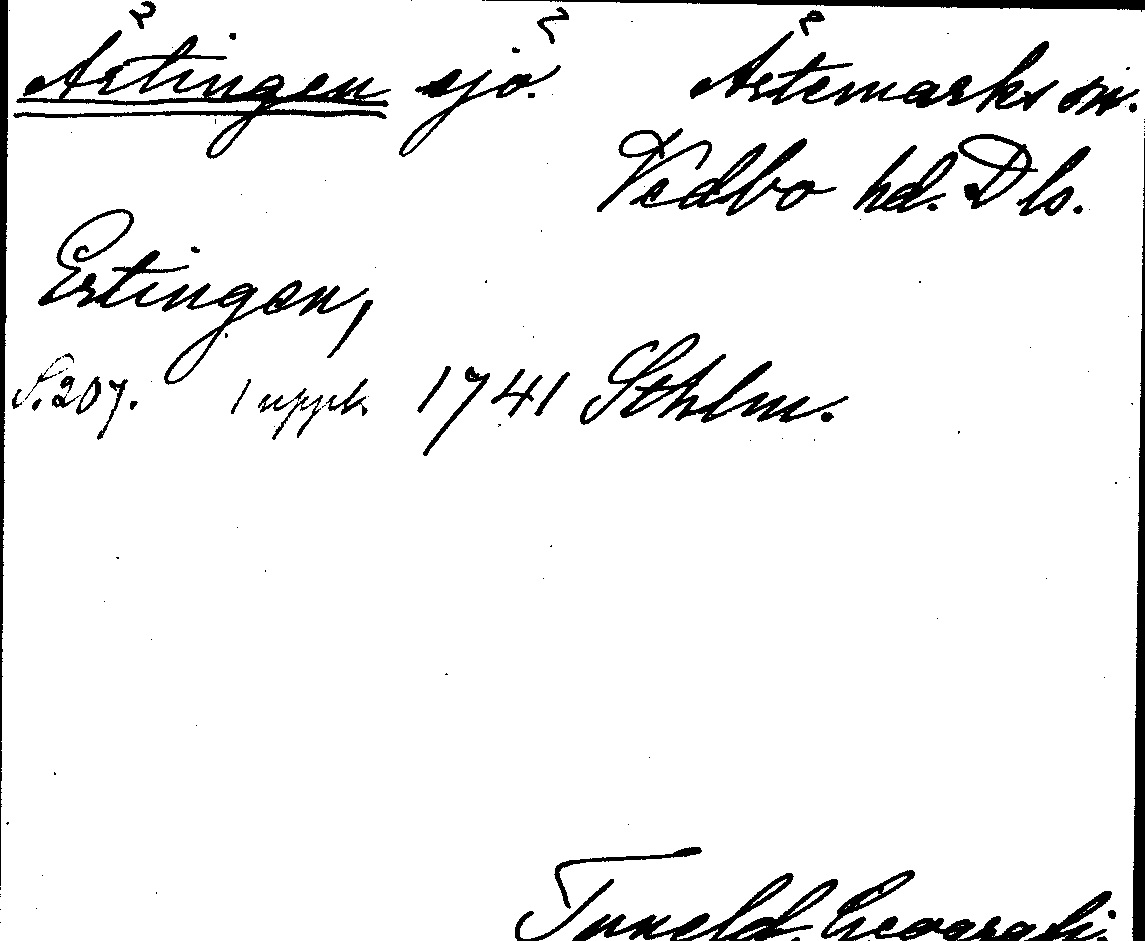 Ärtingen sjö. Ärtemarks sn.
Vedbo hd. Dls.
Ertingen,
S.207. 1 uppl. 1741 Sthlm.
Tuneld. Geografi.